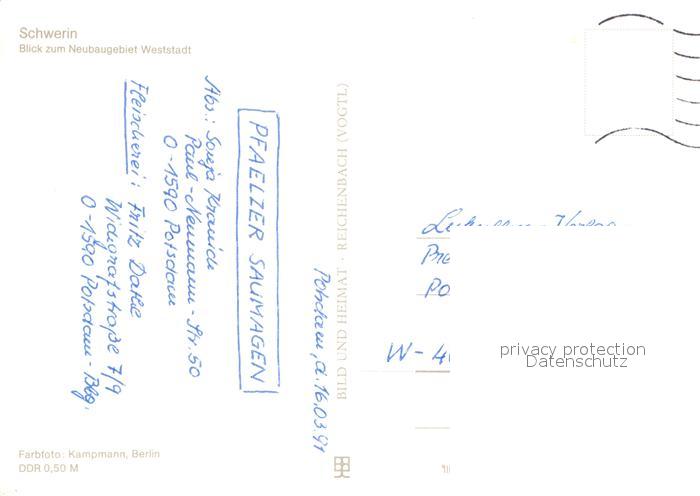 Schwerin
Blick zum Neubaugebiet Weststadt
PFAELZER SAUMAGEN
Abs.: Sonja Kranich
Paul-Neumann-Str. 50
O-1590 Potsdam
Fleischerei: Fritz Datke
Wichgrafstraße 7/9
O-1590 Potsdam-Bbg.
Potsdam, d. 16.03.91
BILD UND HEIMAT · REICHENBACH (VOGTL)
Pre
Po
W-4
privacy protection
Datenschutz
Farbfoto: Kampmann, Berlin
DDR 0,50 M